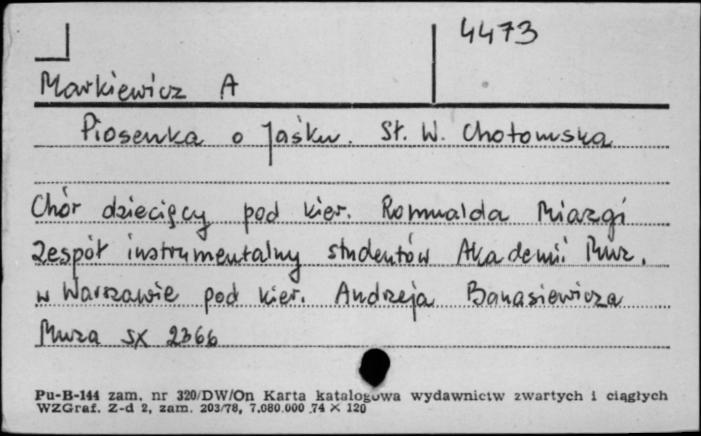 4473
Markiewicz A
Piosenka o Jaśku. Sł. W. Chotomska
Chór dziecięcy pod kier. Romualda Miazgi
Zespół instrumentalny studentów Akademii Muz.
w Warszawie pod kier. Andrzeja Banasiewicza
Muza SX 2366
Pu-B-144 zam. nr 320/DW/On Karta katalogowa wydawnictw zwartych i ciągłych
WZGraf. Z-d 2, zam. 203/78, 7.080.000 74 × 120